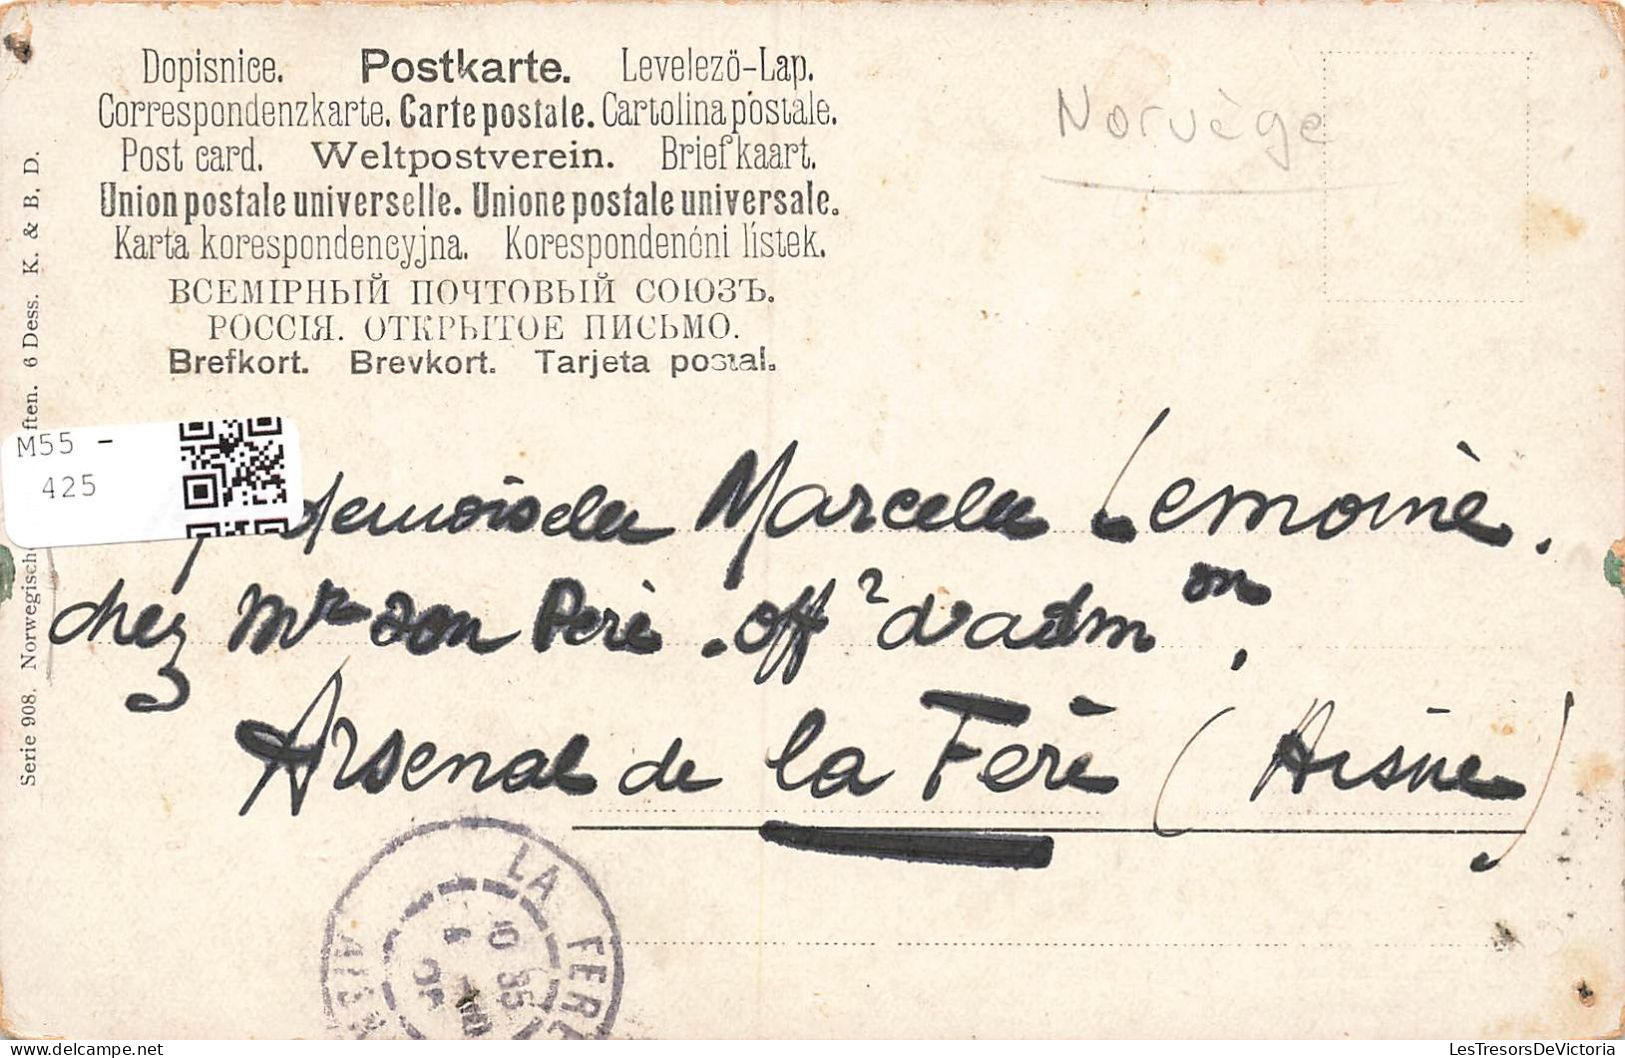 Dopisnice. Postkarte. Levelezö-Lap.
Correspondenzkarte. Carte postale. Cartolina postale.
Post card. Weltpostverein. Briefkaart.
Union postale universelle. Unione postale universale.
Karta korespondencyjna. Korespondenční lístek.
ВСЕМІРНЫЙ ПОЧТОВЫЙ СОЮЗЪ.
РОССІЯ. ОТКРЫТОЕ ПИСЬМО.
Brefkort. Brevkort. Tarjeta postal.
Norvège
Serie 908. Norwegische ften. 6 Dess. K. & B. D.
M55 -
425
demoiselle Marcelle Lemoine.
chez Mr son Père off d'adm on,
Arsenal de la Fère (Aisne)
LA FERE
AISNE
LesTresorsDeVictoria